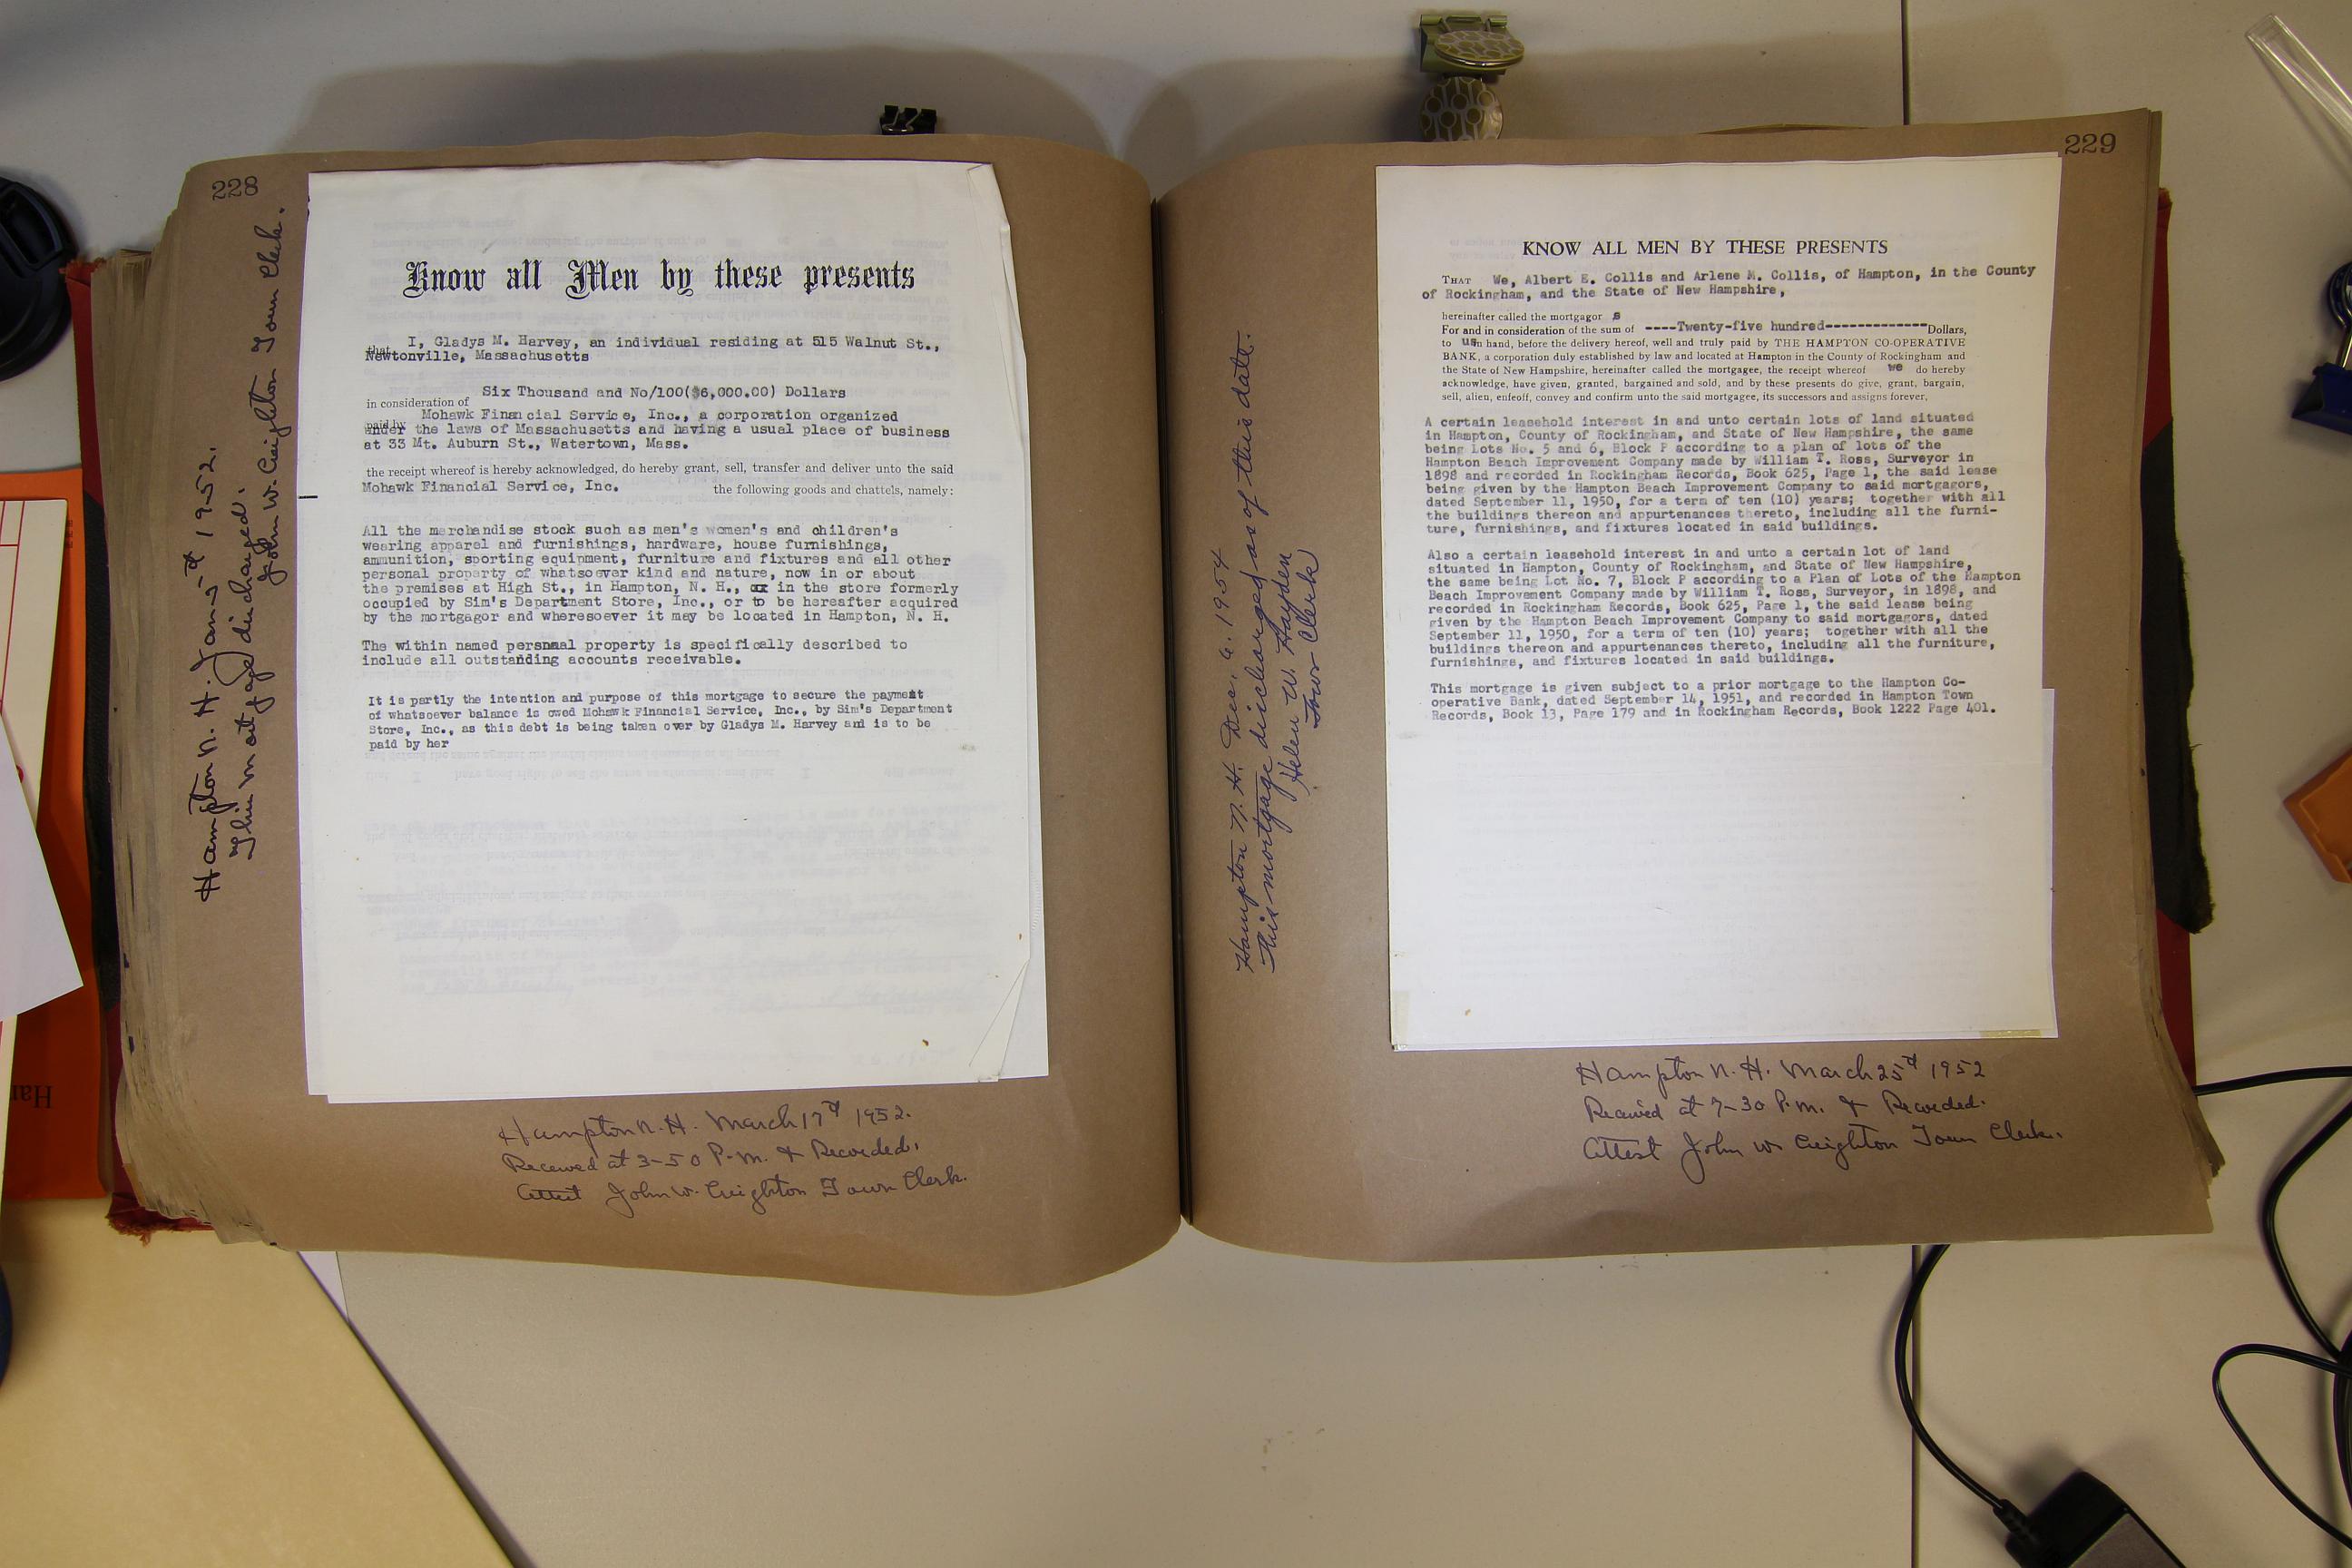 228
Know all Men by these presents
that I, Gladys M. Harvey, an individual residing at 515 Walnut St.,
Newtonville, Massachusetts
Six Thousand and No/100($6,000.00) Dollars
in consideration of
Mohawk Financial Service, Inc., a corporation organized
paid by
under the laws of Massachusetts and having a usual place of business
at 33 Mt. Auburn St., Watertown, Mass.
the receipt whereof is hereby acknowledged, do hereby grant, sell, transfer and deliver unto the said
Mohawk Financial Service, Inc. the following goods and chattels, namely:
All the merchandise stock such as men's women's and children's
wearing apparel and furnishings, hardware, house furnishings,
ammunition, sporting equipment, furniture and fixtures and all other
personal property of whatsoever kind and nature, now in or about
the premises at High St., in Hampton, N. H., in the store formerly
occupied by Sim's Department Store, Inc., or to be hereafter acquired
by the mortgagor and wheresoever it may be located in Hampton, N. H.
The within named personal property is specifically described to
include all outstanding accounts receivable.
It is partly the intention and purpose of this mortgage to secure the payment
of whatsoever balance is owed Mohawk Financial Service, Inc., by Sim's Department
Store, Inc., as this debt is being taken over by Gladys M. Harvey and is to be
paid by her
Hampton N. H. March 17th 1952.
Received at 3-50 P.M. & Recorded.
Attest John W. Creighton Town Clerk.
Hampton N. H. 1952.
This mortgage discharged.
John W. Creighton Town Clerk.
229
KNOW ALL MEN BY THESE PRESENTS
THAT We, Albert E. Collis and Arlene M. Collis, of Hampton, in the County
of Rockingham, and the State of New Hampshire,
hereinafter called the mortgagor s
For and in consideration of the sum of ----Twenty-five hundred-------------Dollars,
to us in hand, before the delivery hereof, well and truly paid by THE HAMPTON CO-OPERATIVE
BANK, a corporation duly established by law and located at Hampton in the County of Rockingham and
the State of New Hampshire, hereinafter called the mortgagee, the receipt whereof we do hereby
acknowledge, have given, granted, bargained and sold, and by these presents do give, grant, bargain,
sell, alien, enfeoff, convey and confirm unto the said mortgagee, its successors and assigns forever,
A certain leasehold interest in and unto certain lots of land situated
in Hampton, County of Rockingham, and State of New Hampshire, the same
being Lots No. 5 and 6, Block P according to a plan of lots of the
Hampton Beach Improvement Company made by William T. Ross, Surveyor in
1898 and recorded in Rockingham Records, Book 625, Page 1, the said lease
being given by the Hampton Beach Improvement Company to said mortgagors,
dated September 11, 1950, for a term of ten (10) years; together with all
the buildings thereon and appurtenances thereto, including all the furni-
ture, furnishings, and fixtures located in said buildings.
Also a certain leasehold interest in and unto a certain lot of land
situated in Hampton, County of Rockingham, and State of New Hampshire,
the same being Lot No. 7, Block P according to a Plan of Lots of the Hampton
Beach Improvement Company made by William T. Ross, Surveyor, in 1898, and
recorded in Rockingham Records, Book 625, Page 1, the said lease being
given by the Hampton Beach Improvement Company to said mortgagors, dated
September 11, 1950, for a term of ten (10) years; together with all the
buildings thereon and appurtenances thereto, including all the furniture,
furnishings, and fixtures located in said buildings.
This mortgage is given subject to a prior mortgage to the Hampton Co-
operative Bank, dated September 14, 1951, and recorded in Hampton Town
Records, Book 13, Page 179 and in Rockingham Records, Book 1222 Page 401.
Hampton N. H. March 25th 1952
Received at 7-30 P.M. & Recorded.
Attest John W. Creighton Town Clerk.
Hampton N. H. Dec. 6. 1954
This mortgage discharged as of this date.
Helen W. Hayden
Town Clerk